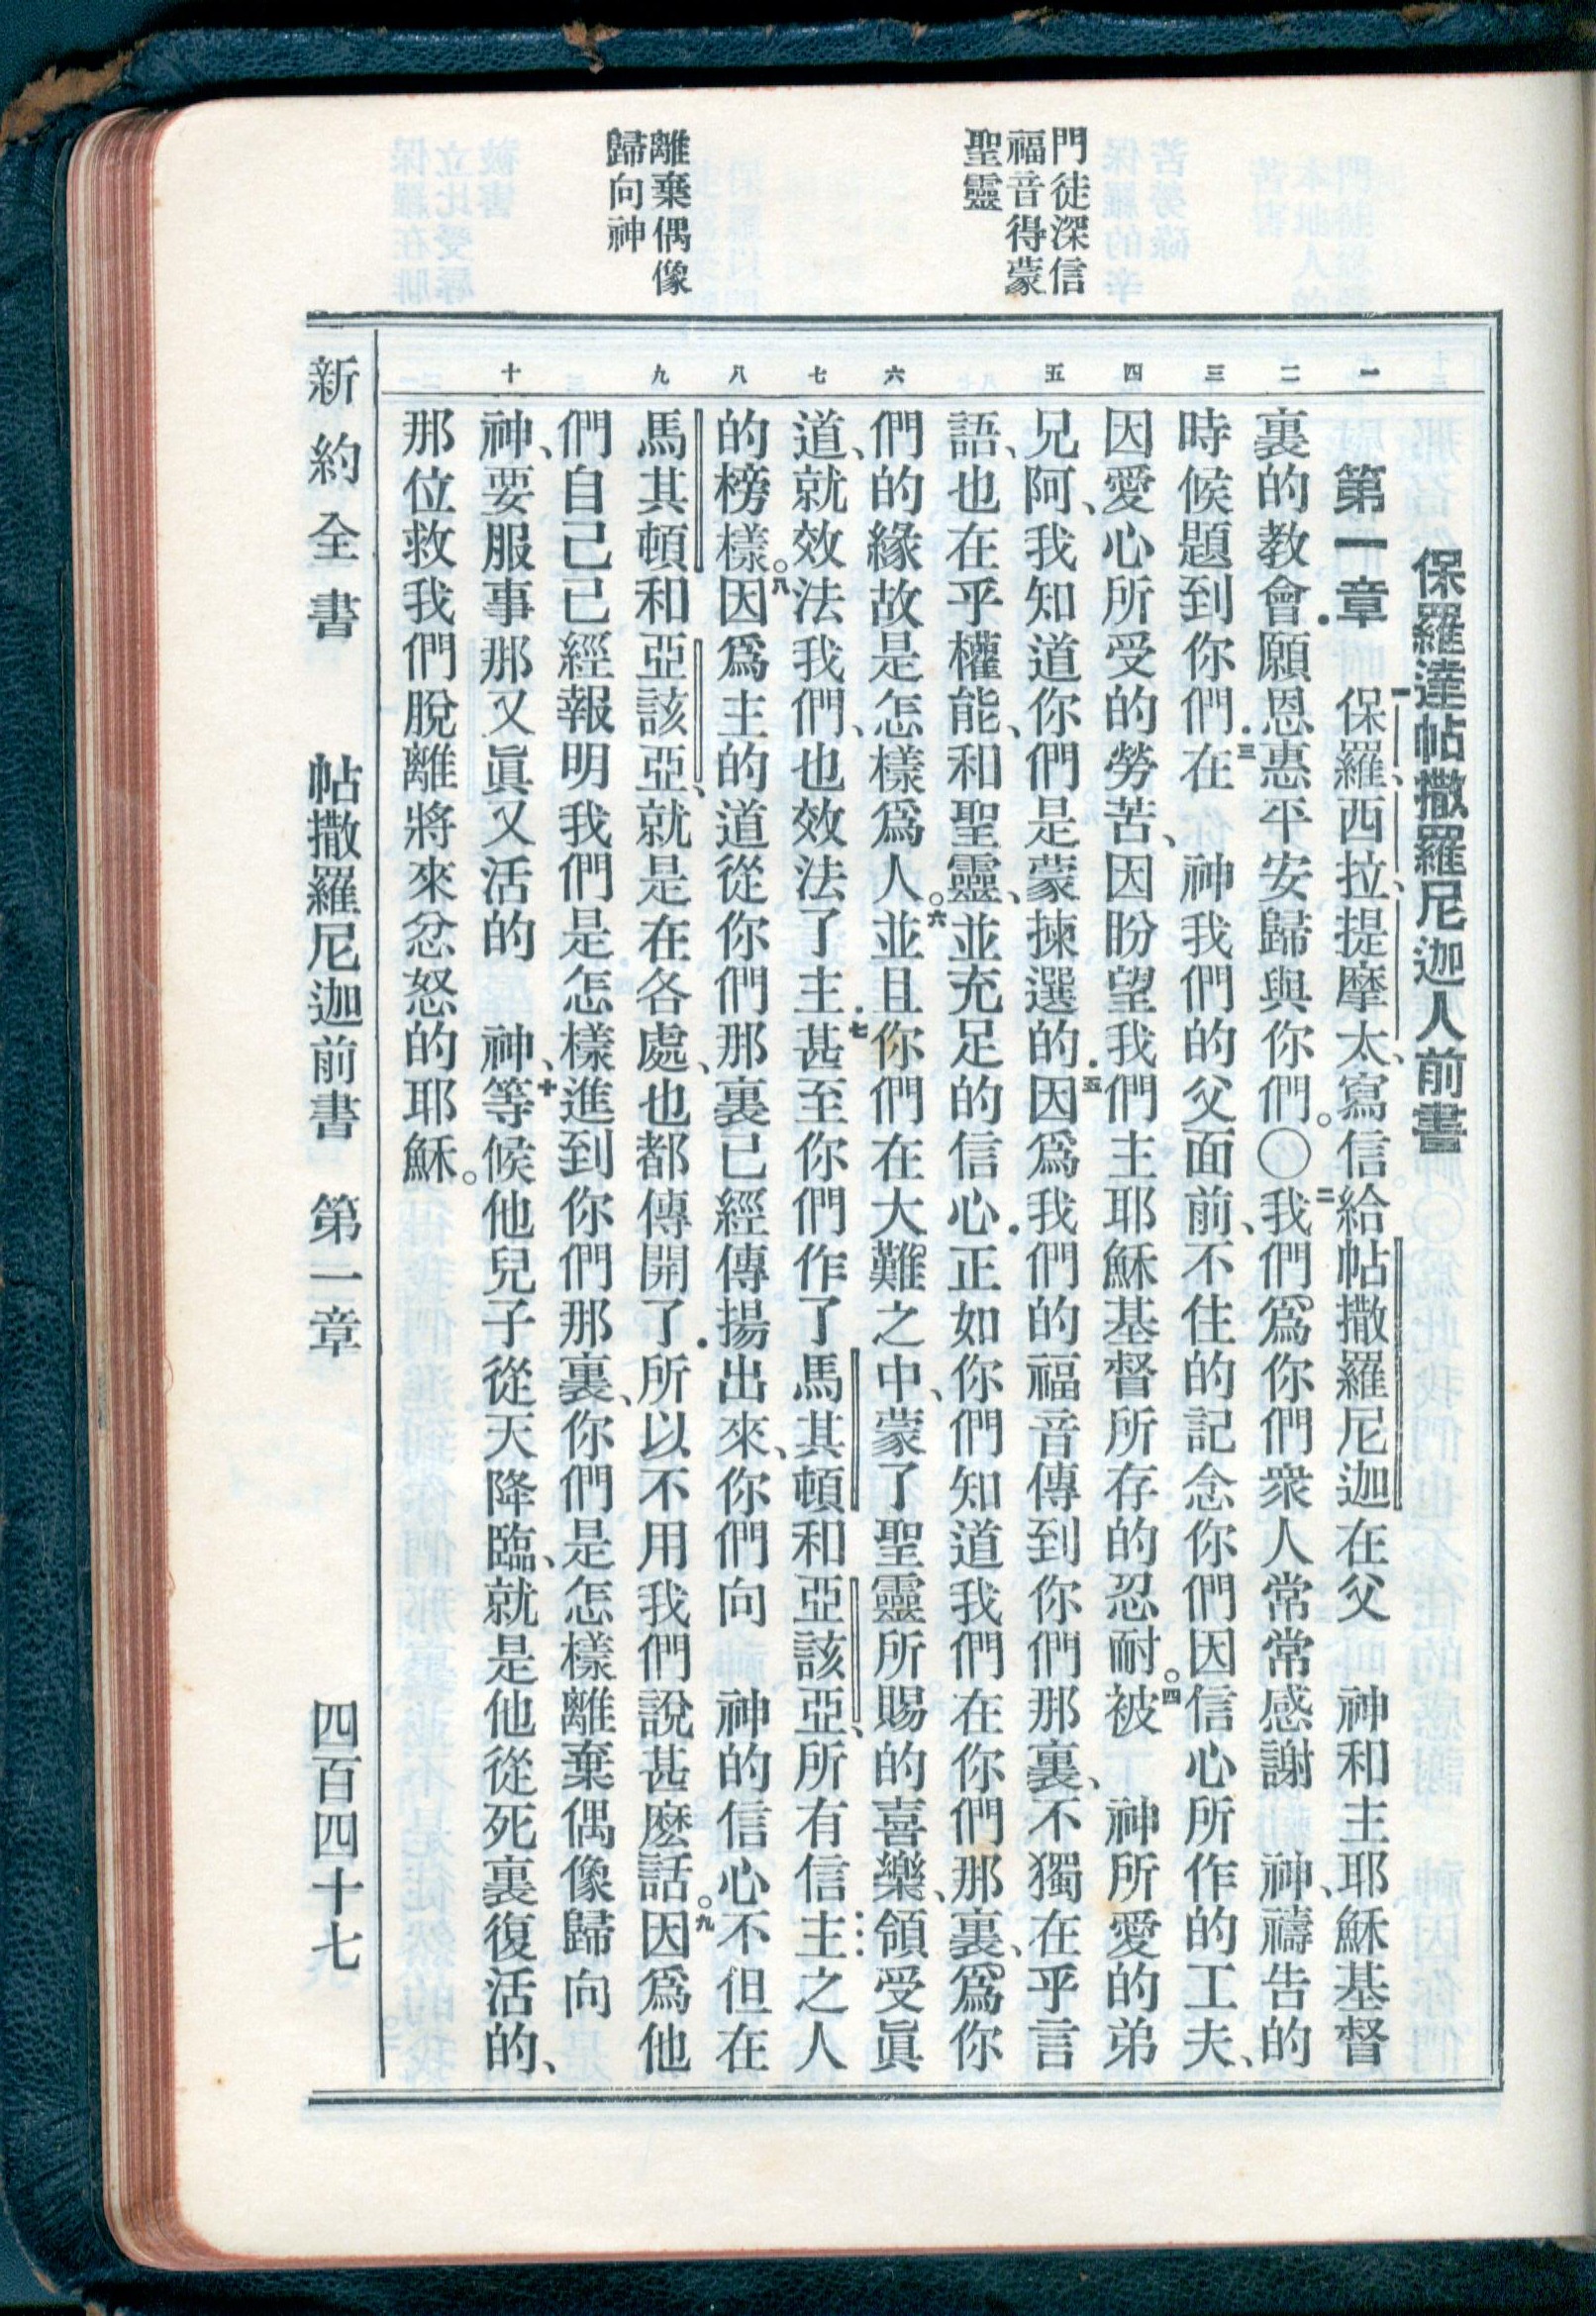 門徒深信
福音得蒙
聖靈
離棄偶像
歸向神
一
二
三
四
五
六
七
八
九
十
保羅達帖撒羅尼迦人前書
第一章 一保羅、西拉、提摩太、寫信給帖撒羅尼迦在父 神和主耶穌基督
裏的教會．願恩惠平安歸與你們。〇二我們爲你們衆人常常感謝 神、禱告的
時候題到你們．三在 神我們的父面前、不住的記念你們因信心所作的工夫、
因愛心所受的勞苦、因盼望我們主耶穌基督所存的忍耐。四被 神所愛的弟
兄阿、我知道你們是蒙揀選的．五因爲我們的福音傳到你們那裏、不獨在乎言
語、也在乎權能、和聖靈、並充足的信心．正如你們知道我們在你們那裏、爲你
們的緣故是怎樣爲人。六並且你們在大難之中、蒙了聖靈所賜的喜樂、領受眞
道、就效法我們、也效法了主．七甚至你們作了馬其頓和亞該亞、所有信主之人
的榜樣。八因爲主的道從你們那裏已經傳揚出來、你們向 神的信心不但在
馬其頓和亞該亞、就是在各處、也都傳開了．所以不用我們說甚麼話。九因爲他
們自己已經報明我們是怎樣進到你們那裏、你們是怎樣離棄偶像歸向
神、要服事那又眞又活的 神、十等候他兒子從天降臨、就是他從死裏復活的、
那位救我們脫離將來忿怒的耶穌。
新約全書 帖撒羅尼迦前書 第一章 四百四十七